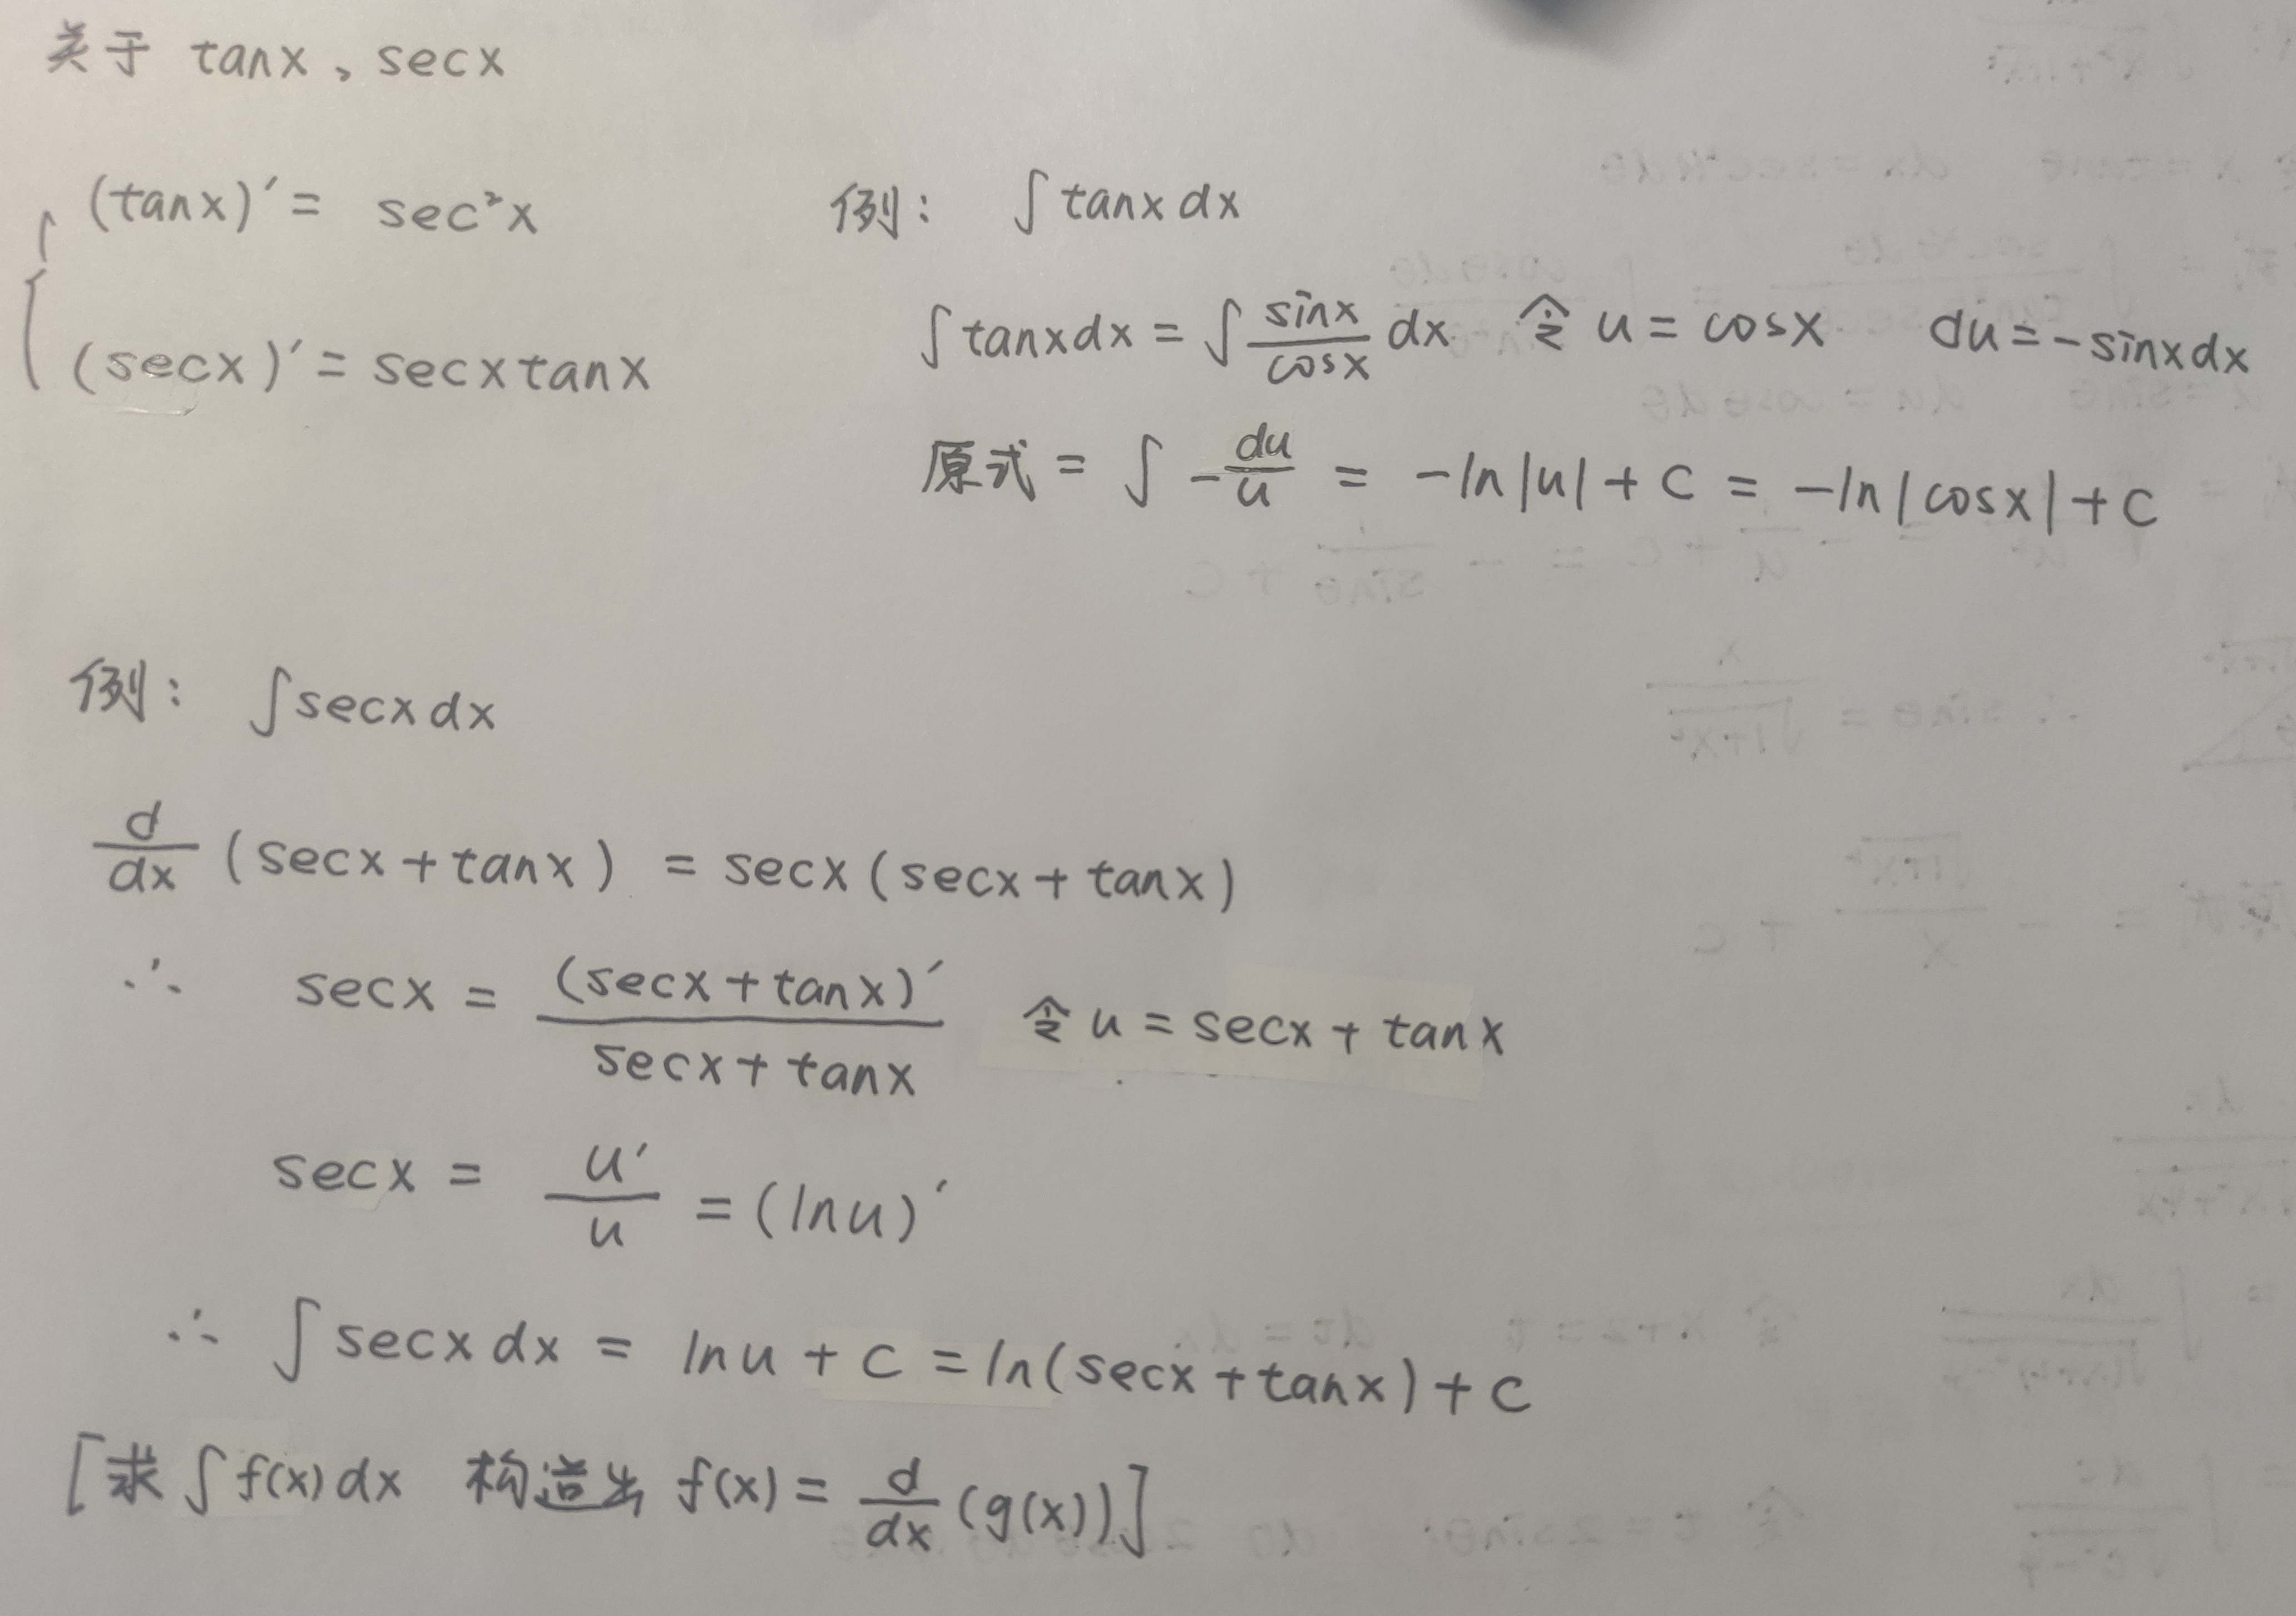 关于 tanx、secx
(tanx)′ = sec²x
(secx)′ = secxtanx
例： ∫tanxdx
∫tanxdx = ∫ sinx/cosx dx 令 u = cosx du = -sinxdx
原式 = ∫ -du/u = -ln|u| + C = -ln|cosx| + C
例： ∫secxdx
d/dx (secx + tanx) = secx(secx + tanx)
∴ secx = (secx + tanx)′/secx + tanx 令 u = secx + tanx
secx = u′/u = (lnu)′
∴ ∫secxdx = lnu + C = ln(secx + tanx) + C
[求∫f(x)dx 构造出 f(x) = d/dx (g(x))]